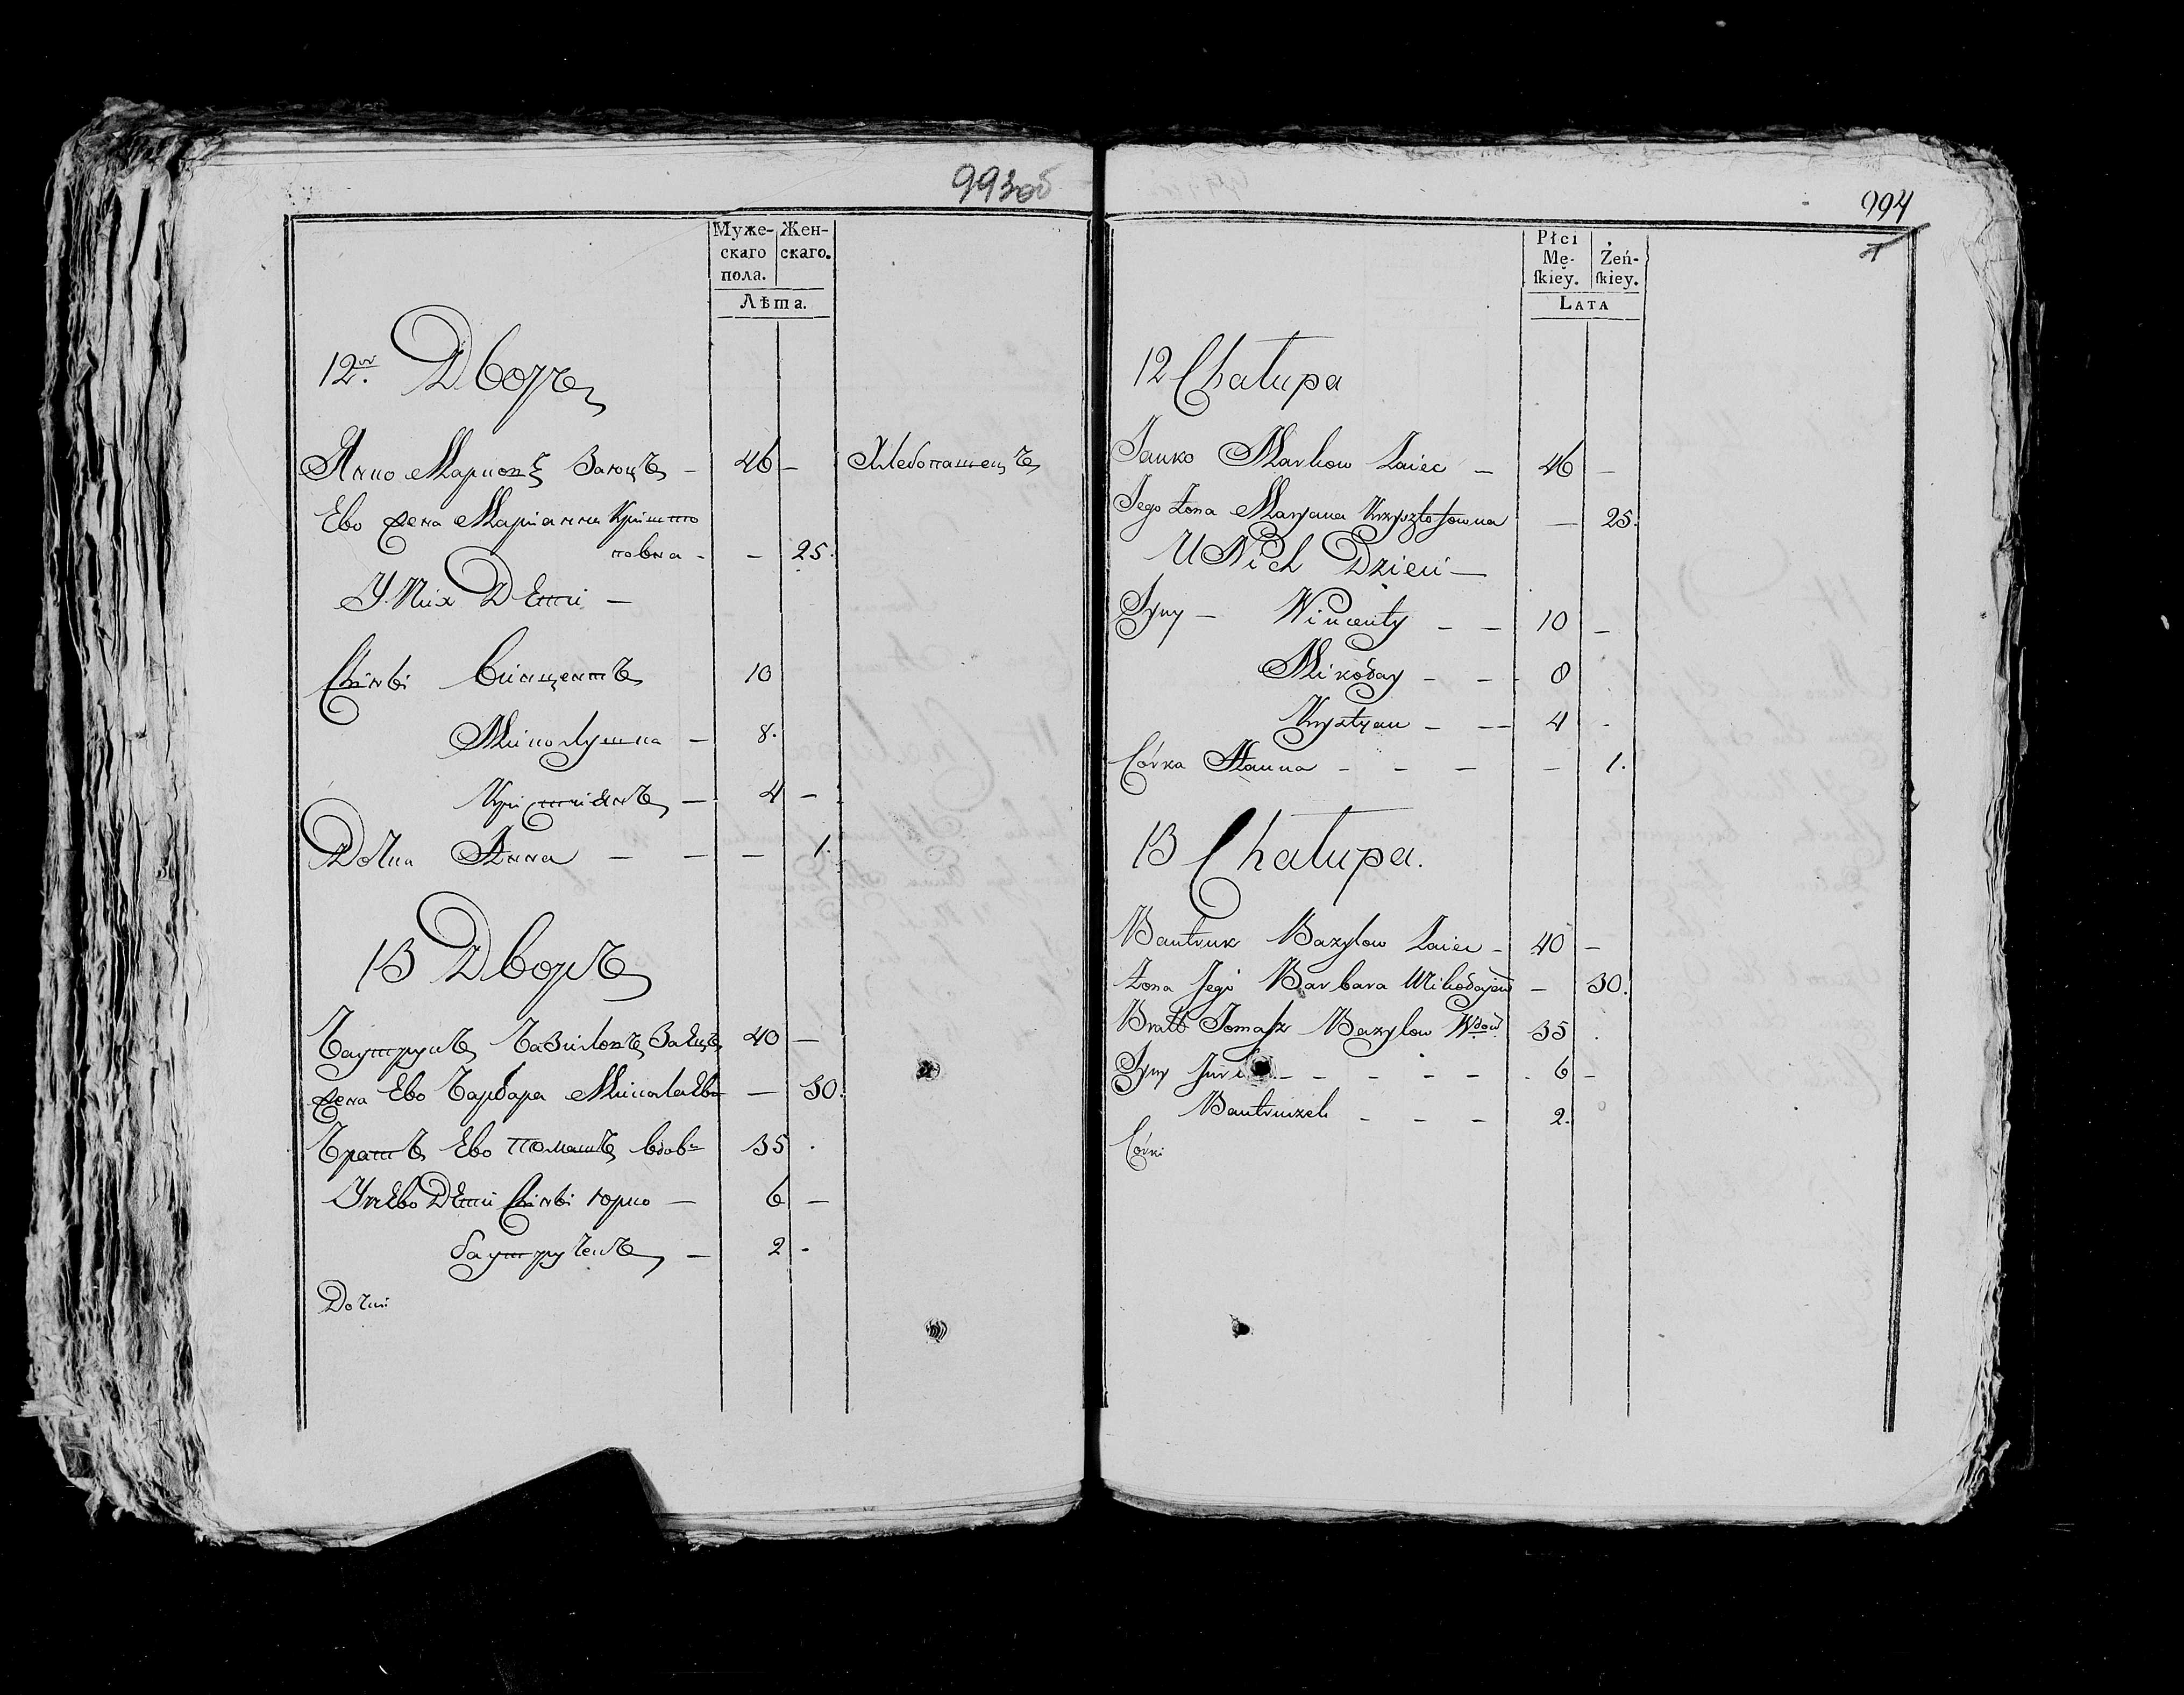 993об
Муже-
скаго
пола.
Жен-
скаго.
Лѣта.
12ый Дворъ
Янко Марковъ Заюцъ — 46 — Хлебопашецъ
Ево жена Марианна Кришто
повна - — 25.
У Них Дети —
Сынъи Винцентъ 10
Миколушка — 8.
Криштиянъ — 4 —
Дочка Анна — — — 1.
13 Дворъ
Баутрукъ Базилювъ Заецъ 40 —
жена Ево Барбара Миколаева — 30.
Братъ Ево Томашъ вдовъ 35 .
У нево Дети Сынъи Юрко — 6 —
баутручекъ — 2 -
Дочки
994
Płci
Mę-
ſkiey.
Żeń-
ſkiey.
Lata
12 Chałupa
Janko Markow Zaiec — 46 —
Jego Żona Maryana Krzysztofowna — 25.
U Nich Dzieci —
Syny — Wincenty — — 10 —
Mikołay — — 8
Krystyan — — 4 -
Córka Hanna — — — — 1.
13 Chałupa.
Bautruk Bazylow Zaiec - 40 —
Żona Jego Barbara Mikołajew — 30.
Bratt Tomaſz Bazylow Wdow 35 .
Syny Jurk — — — — 6 —
Bautruczek — — — 2.
Córki